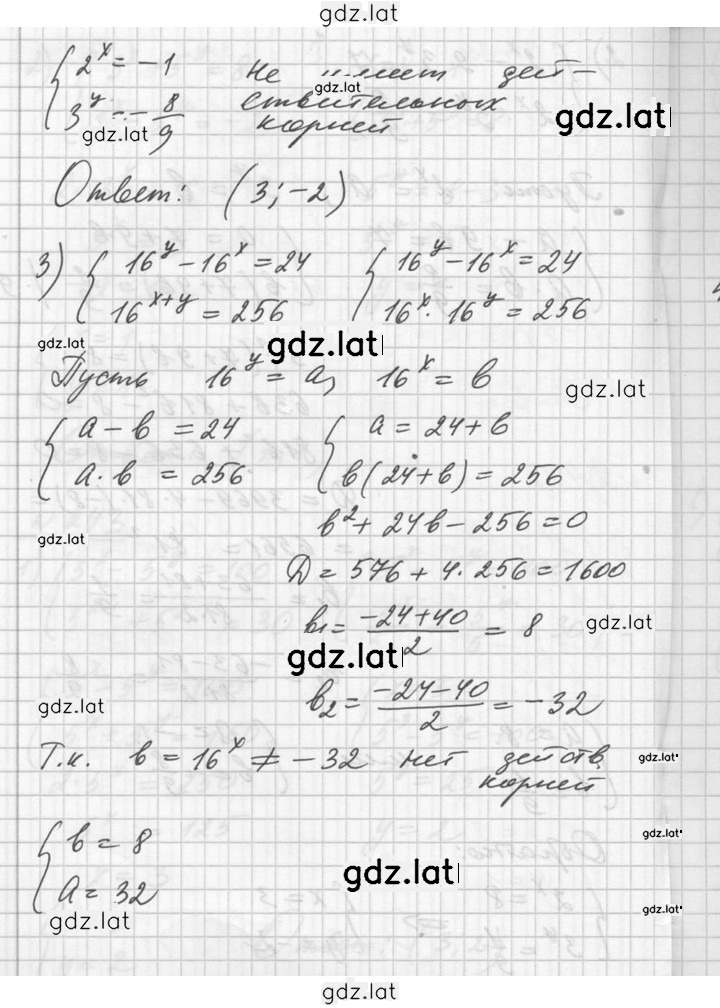 gdz.lat
2^x = -1 Не имеет дей-
gdz.lat
3^y = -8/9 ствительных
gdz.lat корней gdz.lat
Ответ: (3; -2)
3) 16^y - 16^x = 24 16^y - 16^x = 24
16^{x+y} = 256 16^x · 16^y = 256
gdz.lat gdz.lat
Пусть 16^y = a, 16^x = b gdz.lat
a - b = 24 a = 24 + b
a · b = 256 b(24 + b) = 256
b^2 + 24b - 256 = 0
gdz.lat
D = 576 + 4 · 256 = 1600
b_1 = (-24 + 40)/2 = 8 gdz.lat
gdz.lat
gdz.lat b_2 = (-24 - 40)/2 = -32
Т.к. b = 16^x ≠ -32 нет действ. gdz.lat
корней
b = 8 gdz.lat
a = 32 gdz.lat
gdz.lat gdz.lat
gdz.lat